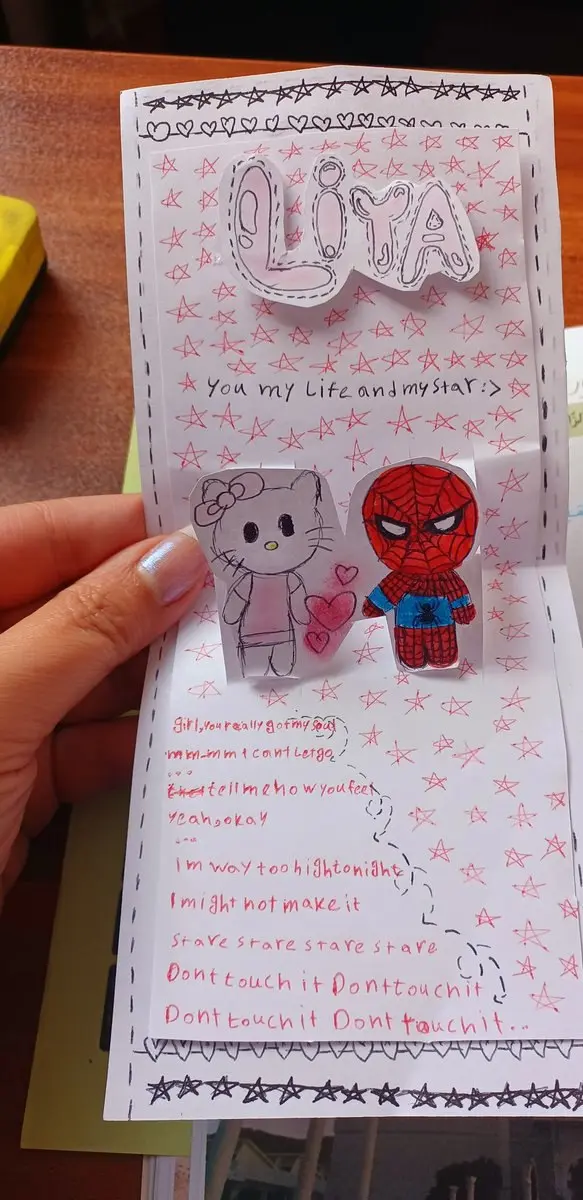 LiYA
You my Life and my star:>
girl, you really got my soul
mm-mm I cant Let go
...
tell me how you feel
yeah, okay
...
I'm way too high tonight
I might not make it
stare stare stare stare
Dont touch it Dont touch it
Dont touch it Dont touch it...